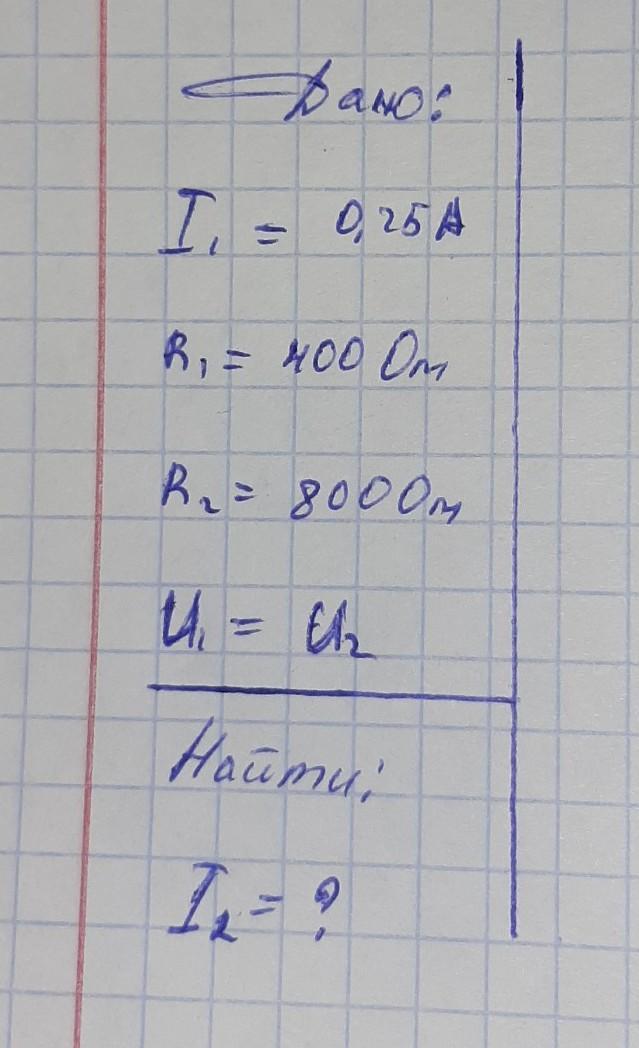 Дано:
I₁ = 0,25 А
R₁ = 400 Ом
R₂ = 800 Ом
U₁ = U₂
Найти:
I₂ = ?